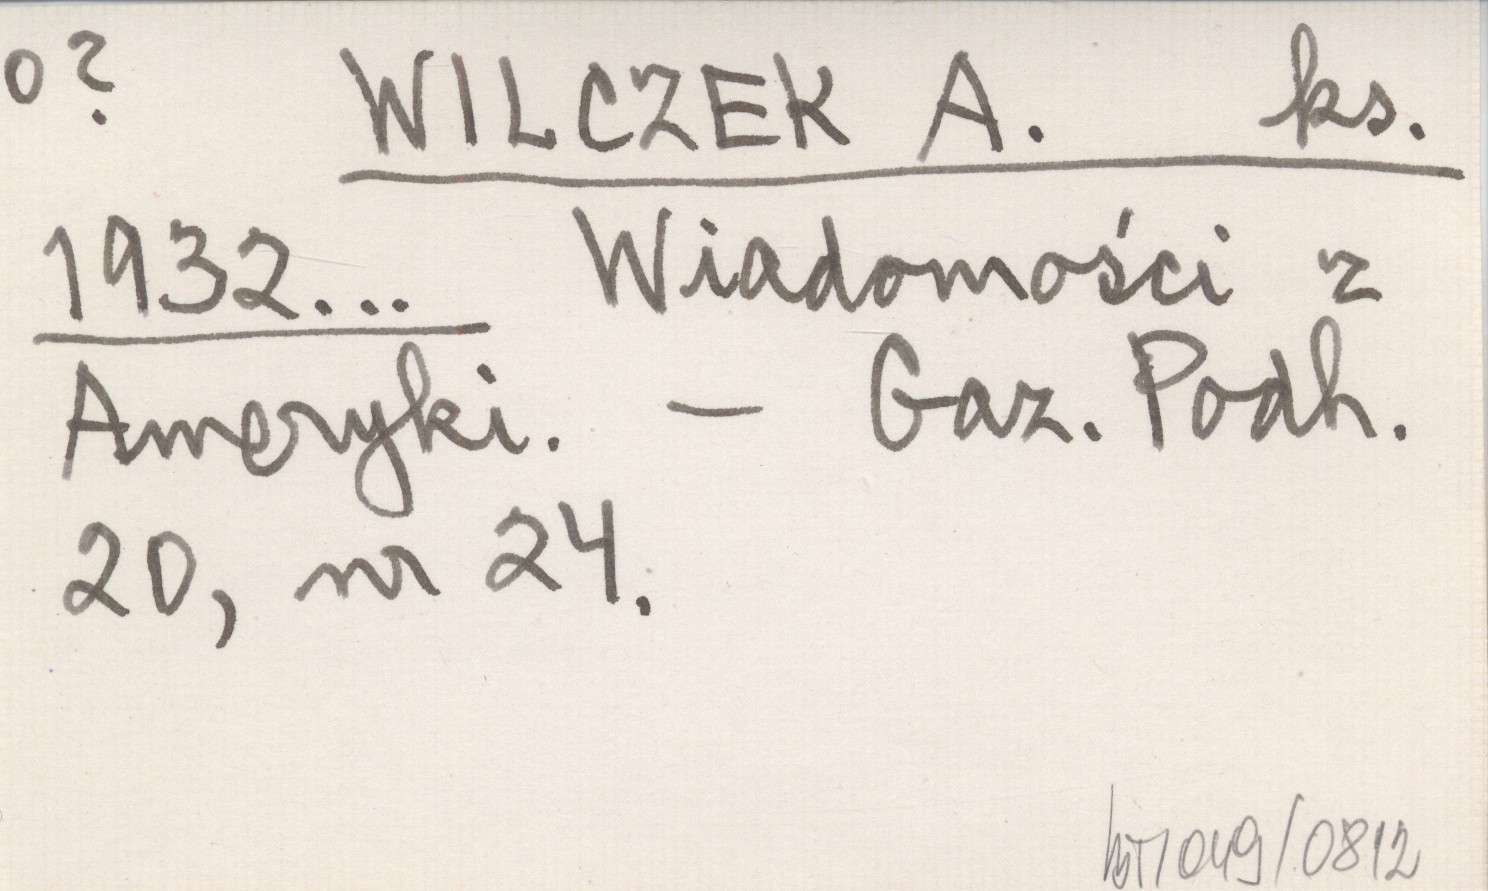 o? WILCZEK A. ks.
1932... Wiadomości z
Ameryki. — Gaz. Podh.
20, nr 24.
049/0812